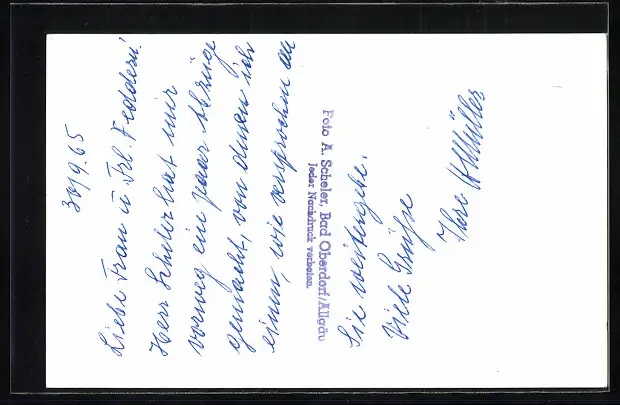 30/9.65
Liebe Frau u. Frl. Feddern!
Herr Scheler hat mir
vorweg ein paar Abzüge
gemacht, von denen ich
einen, wie versprochen an
Foto A. Scheler, Bad Oberdorf/Allgäu
Jeder Nachdruck verboten.
Sie weitergebe.
Viele Grüße
Ihre HMüller